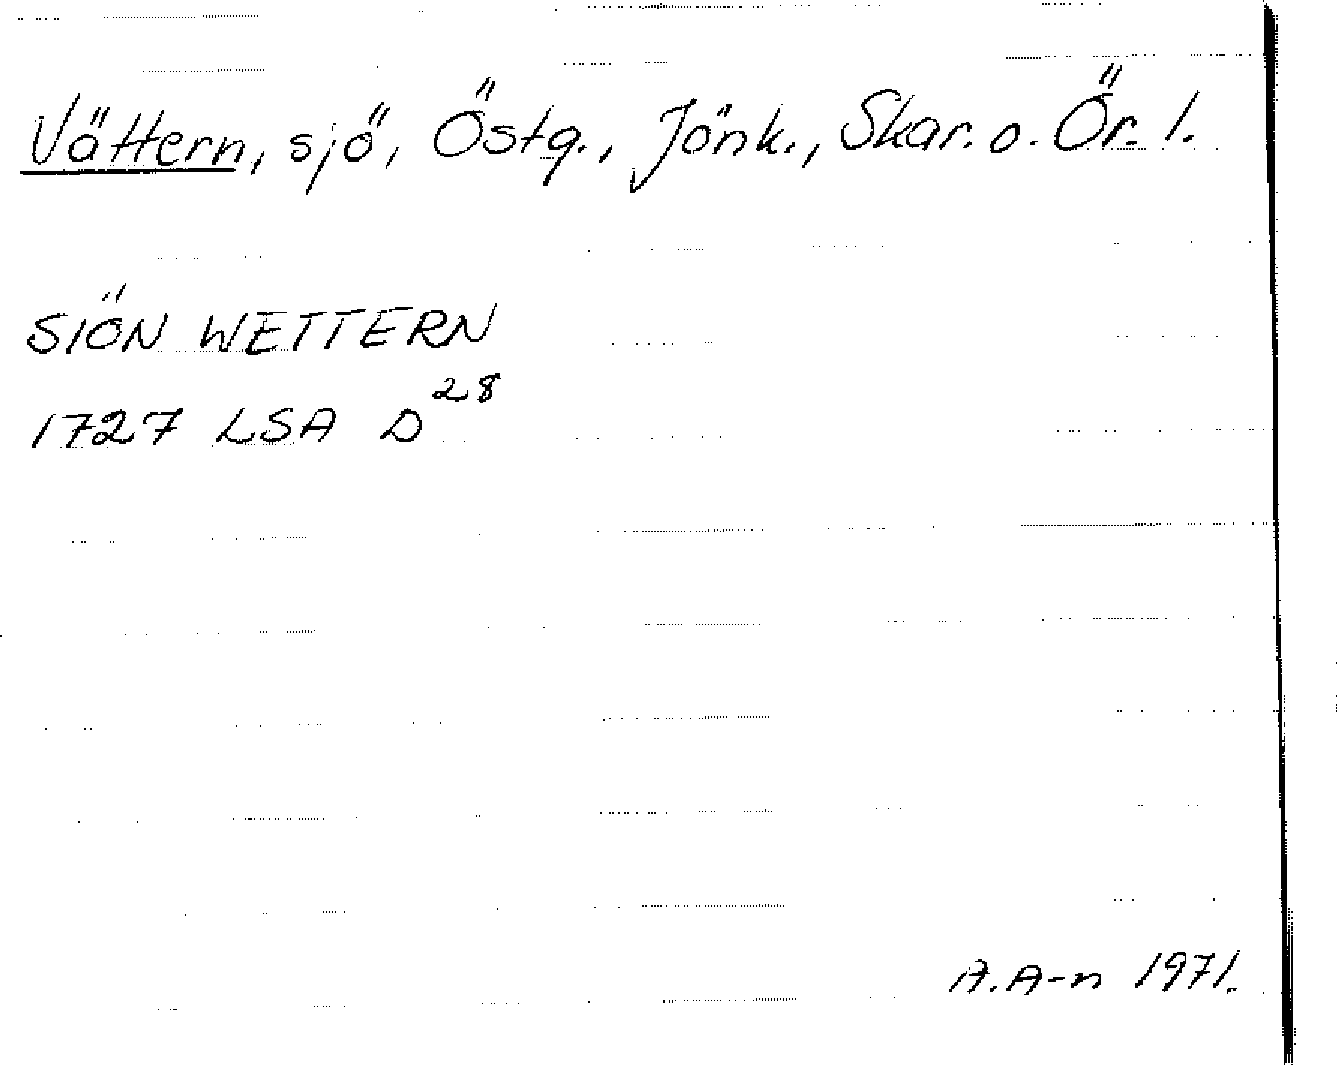 Vättern, sjö, Östg., Jönk., Skar. o. Ör. l.
SIÖN WETTERN
1727 LSA D²⁸
A. A-n 1971.